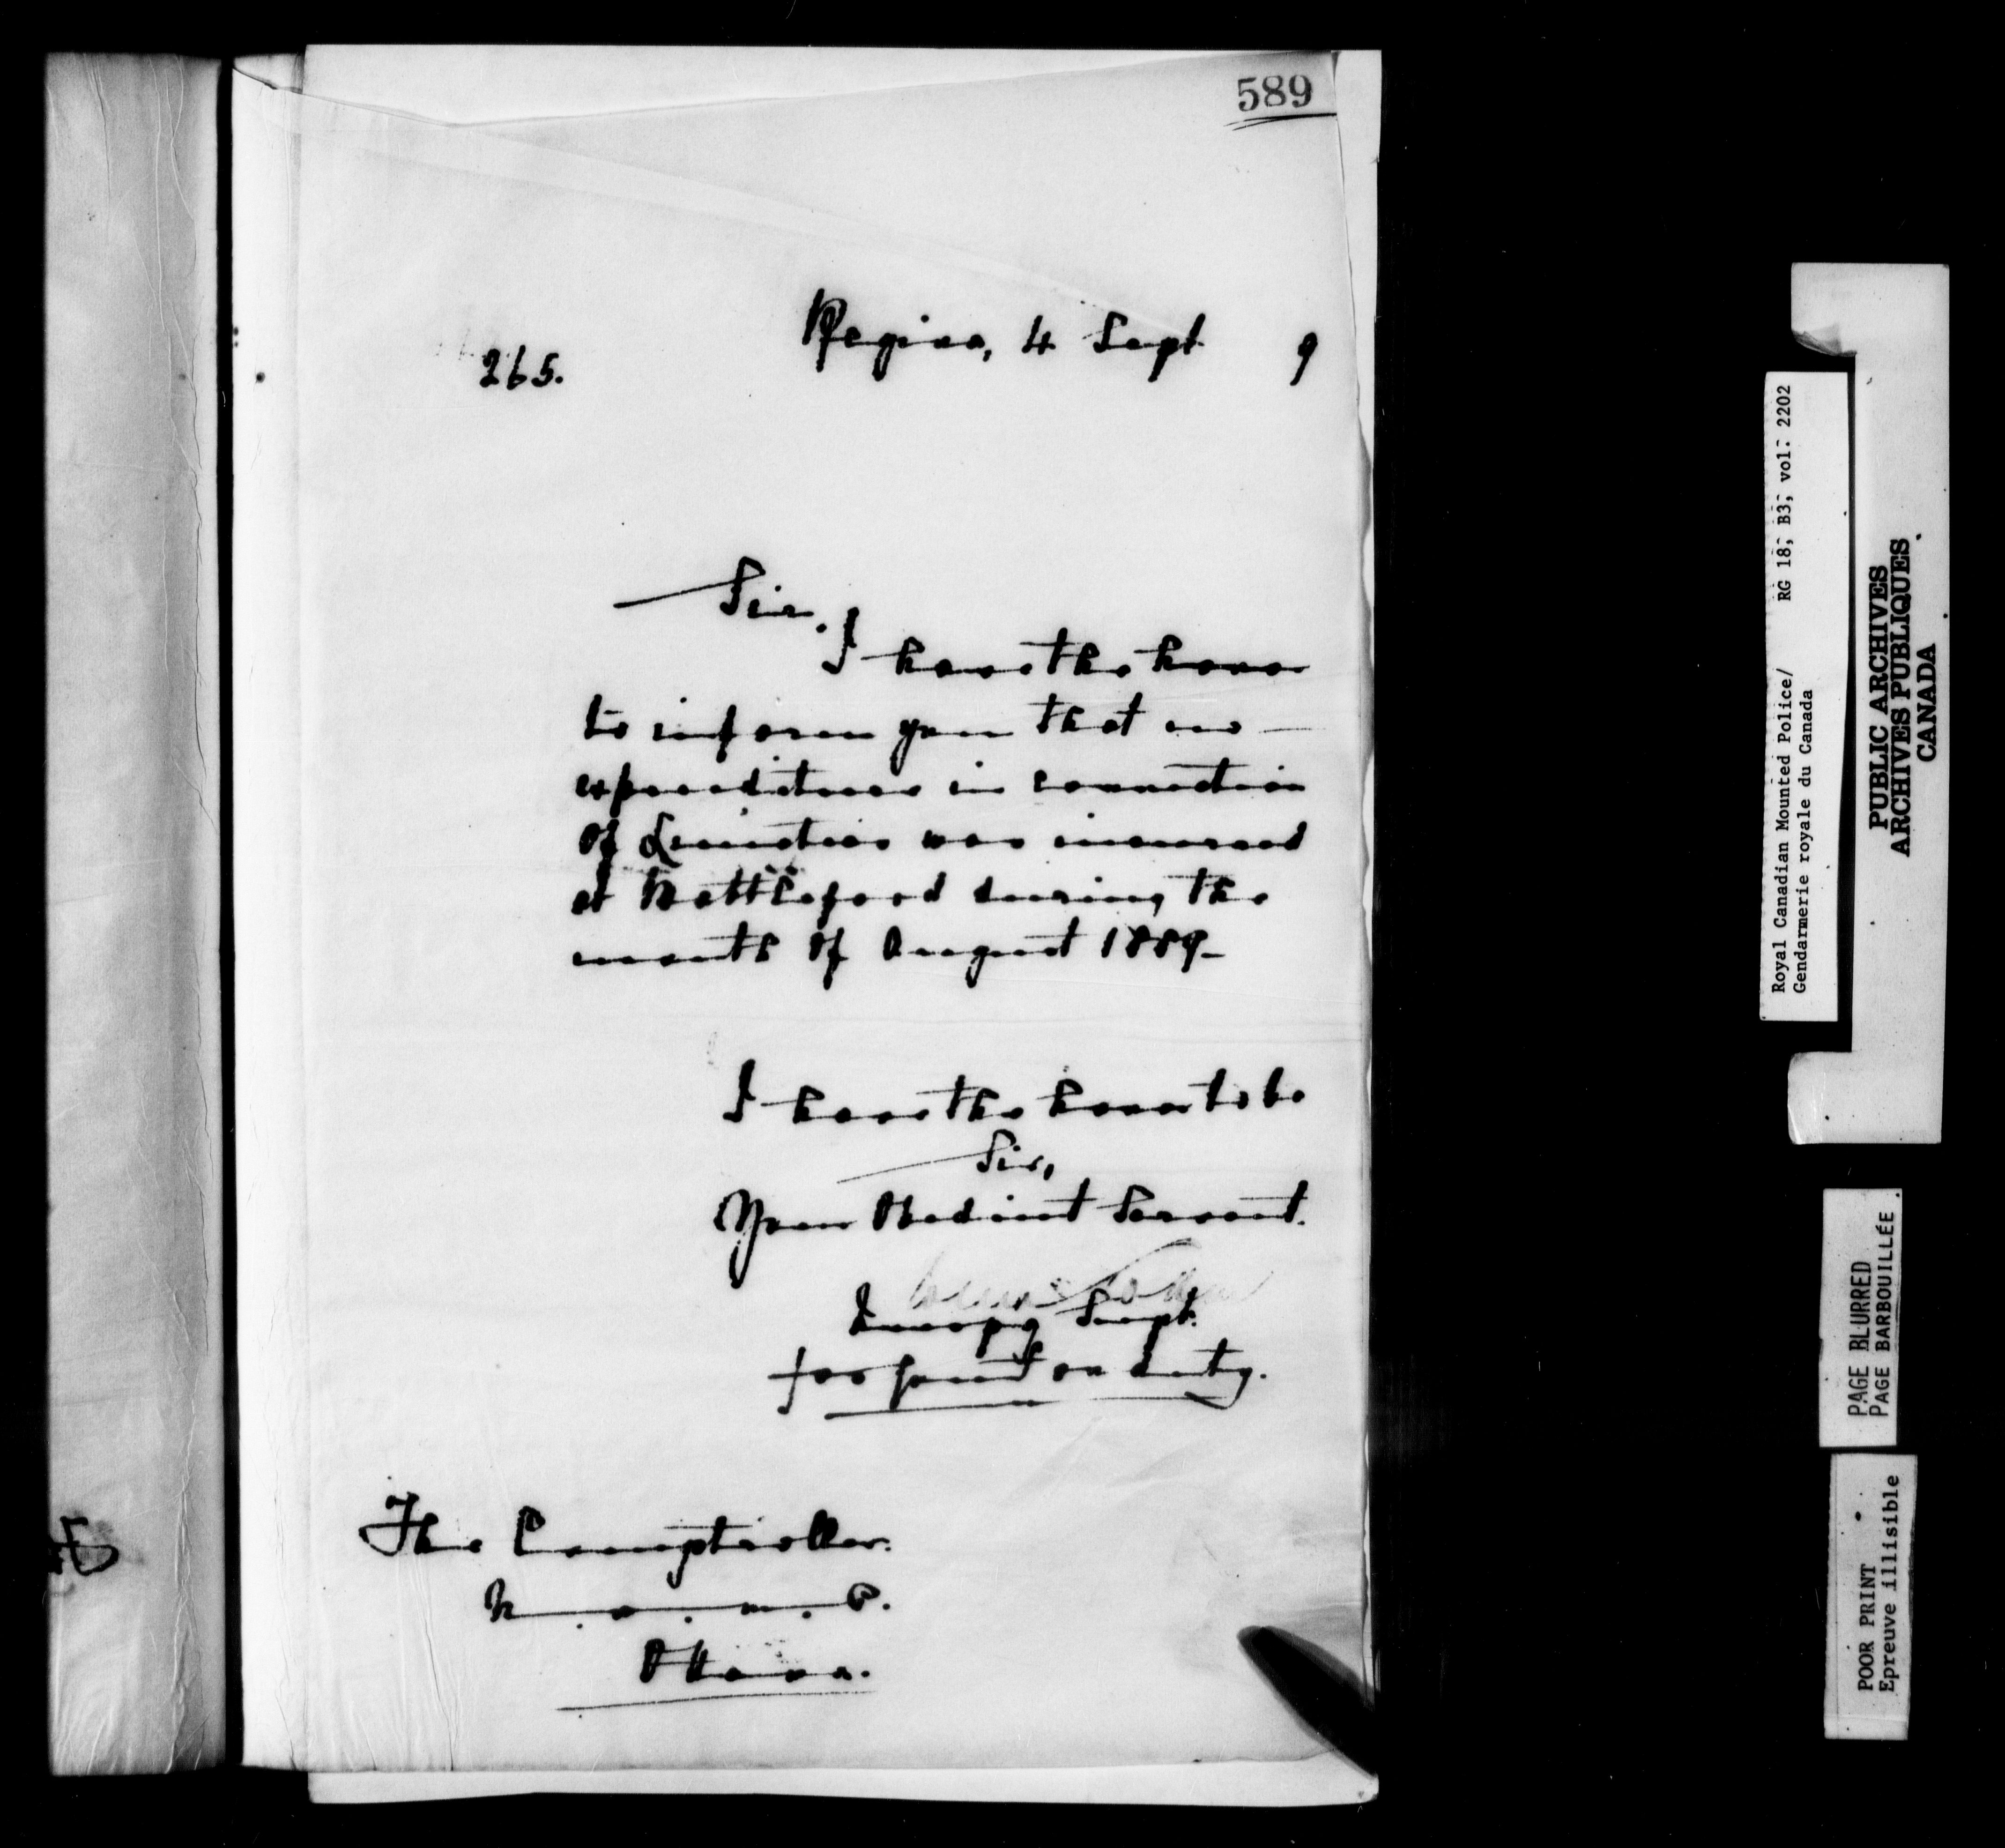 589
Regina, 4 Sept 9
265.
Sir.
I have the honor
to inform you that no
expenditure in connection
of was incurred
at Battleford during the
month of August 1889
I have the honor to be
Sir,
Your Obedient Servant.
Supt.
for on duty.
The Comptroller.
N. W. M. P.
Ottawa.
Royal Canadian Mounted Police/ RG 18, B3, vol. 2202
Gendarmerie royale du Canada
PUBLIC ARCHIVES
ARCHIVES PUBLIQUES
CANADA
PAGE BLURRED
PAGE BARBOUILLÉE
POOR PRINT
Epreuve illisible